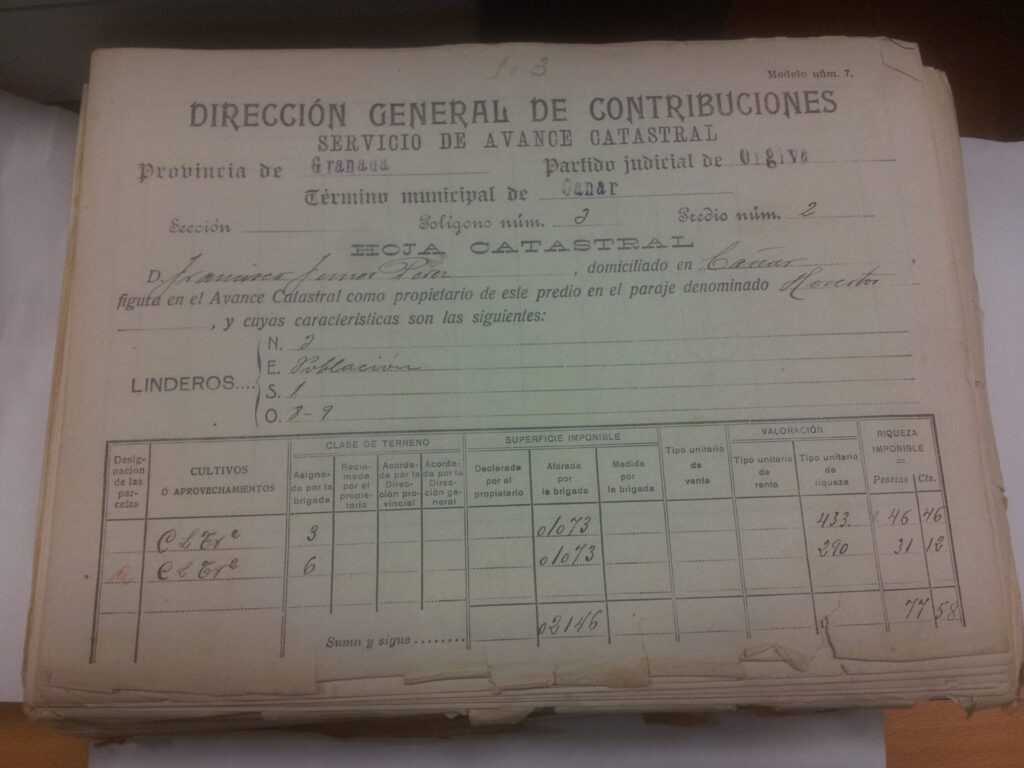 Modelo núm. 7.
DIRECCIÓN GENERAL DE CONTRIBUCIONES
SERVICIO DE AVANCE CATASTRAL
Provincia de Granada Partido judicial de Orgiva
Término municipal de Canar
Sección Polígono núm. 2 Predio núm. 2
HOJA CATASTRAL
D. Francisco , domiciliado en Cañar ,
figura en el Avance Catastral como propietario de este predio en el paraje denominado
, y cuyas características son las siguientes:
LINDEROS....
N.
E. Población
S. 1
O. 8-9
Designación de las parcelas
CULTIVOS Ó APROVECHAMIENTOS
CLASE DE TERRENO
Asignada por la brigada
Reclamada por el propietario
Acordada por la Dirección provincial
Acordada por la Dirección general
SUPERFICIE IMPONIBLE
Declarada por el propietario
Aforada por la brigada
Medida por la brigada
Tipo unitario de venta
VALORACIÓN
Tipo unitario de renta
Tipo unitario de riqueza
RIQUEZA IMPONIBLE
Pesetas Cts.
C L Trª 3 01073 433 46 46
C L Trª 6 01073 290 31 12
Suma y sigue ........ 02146 77 58